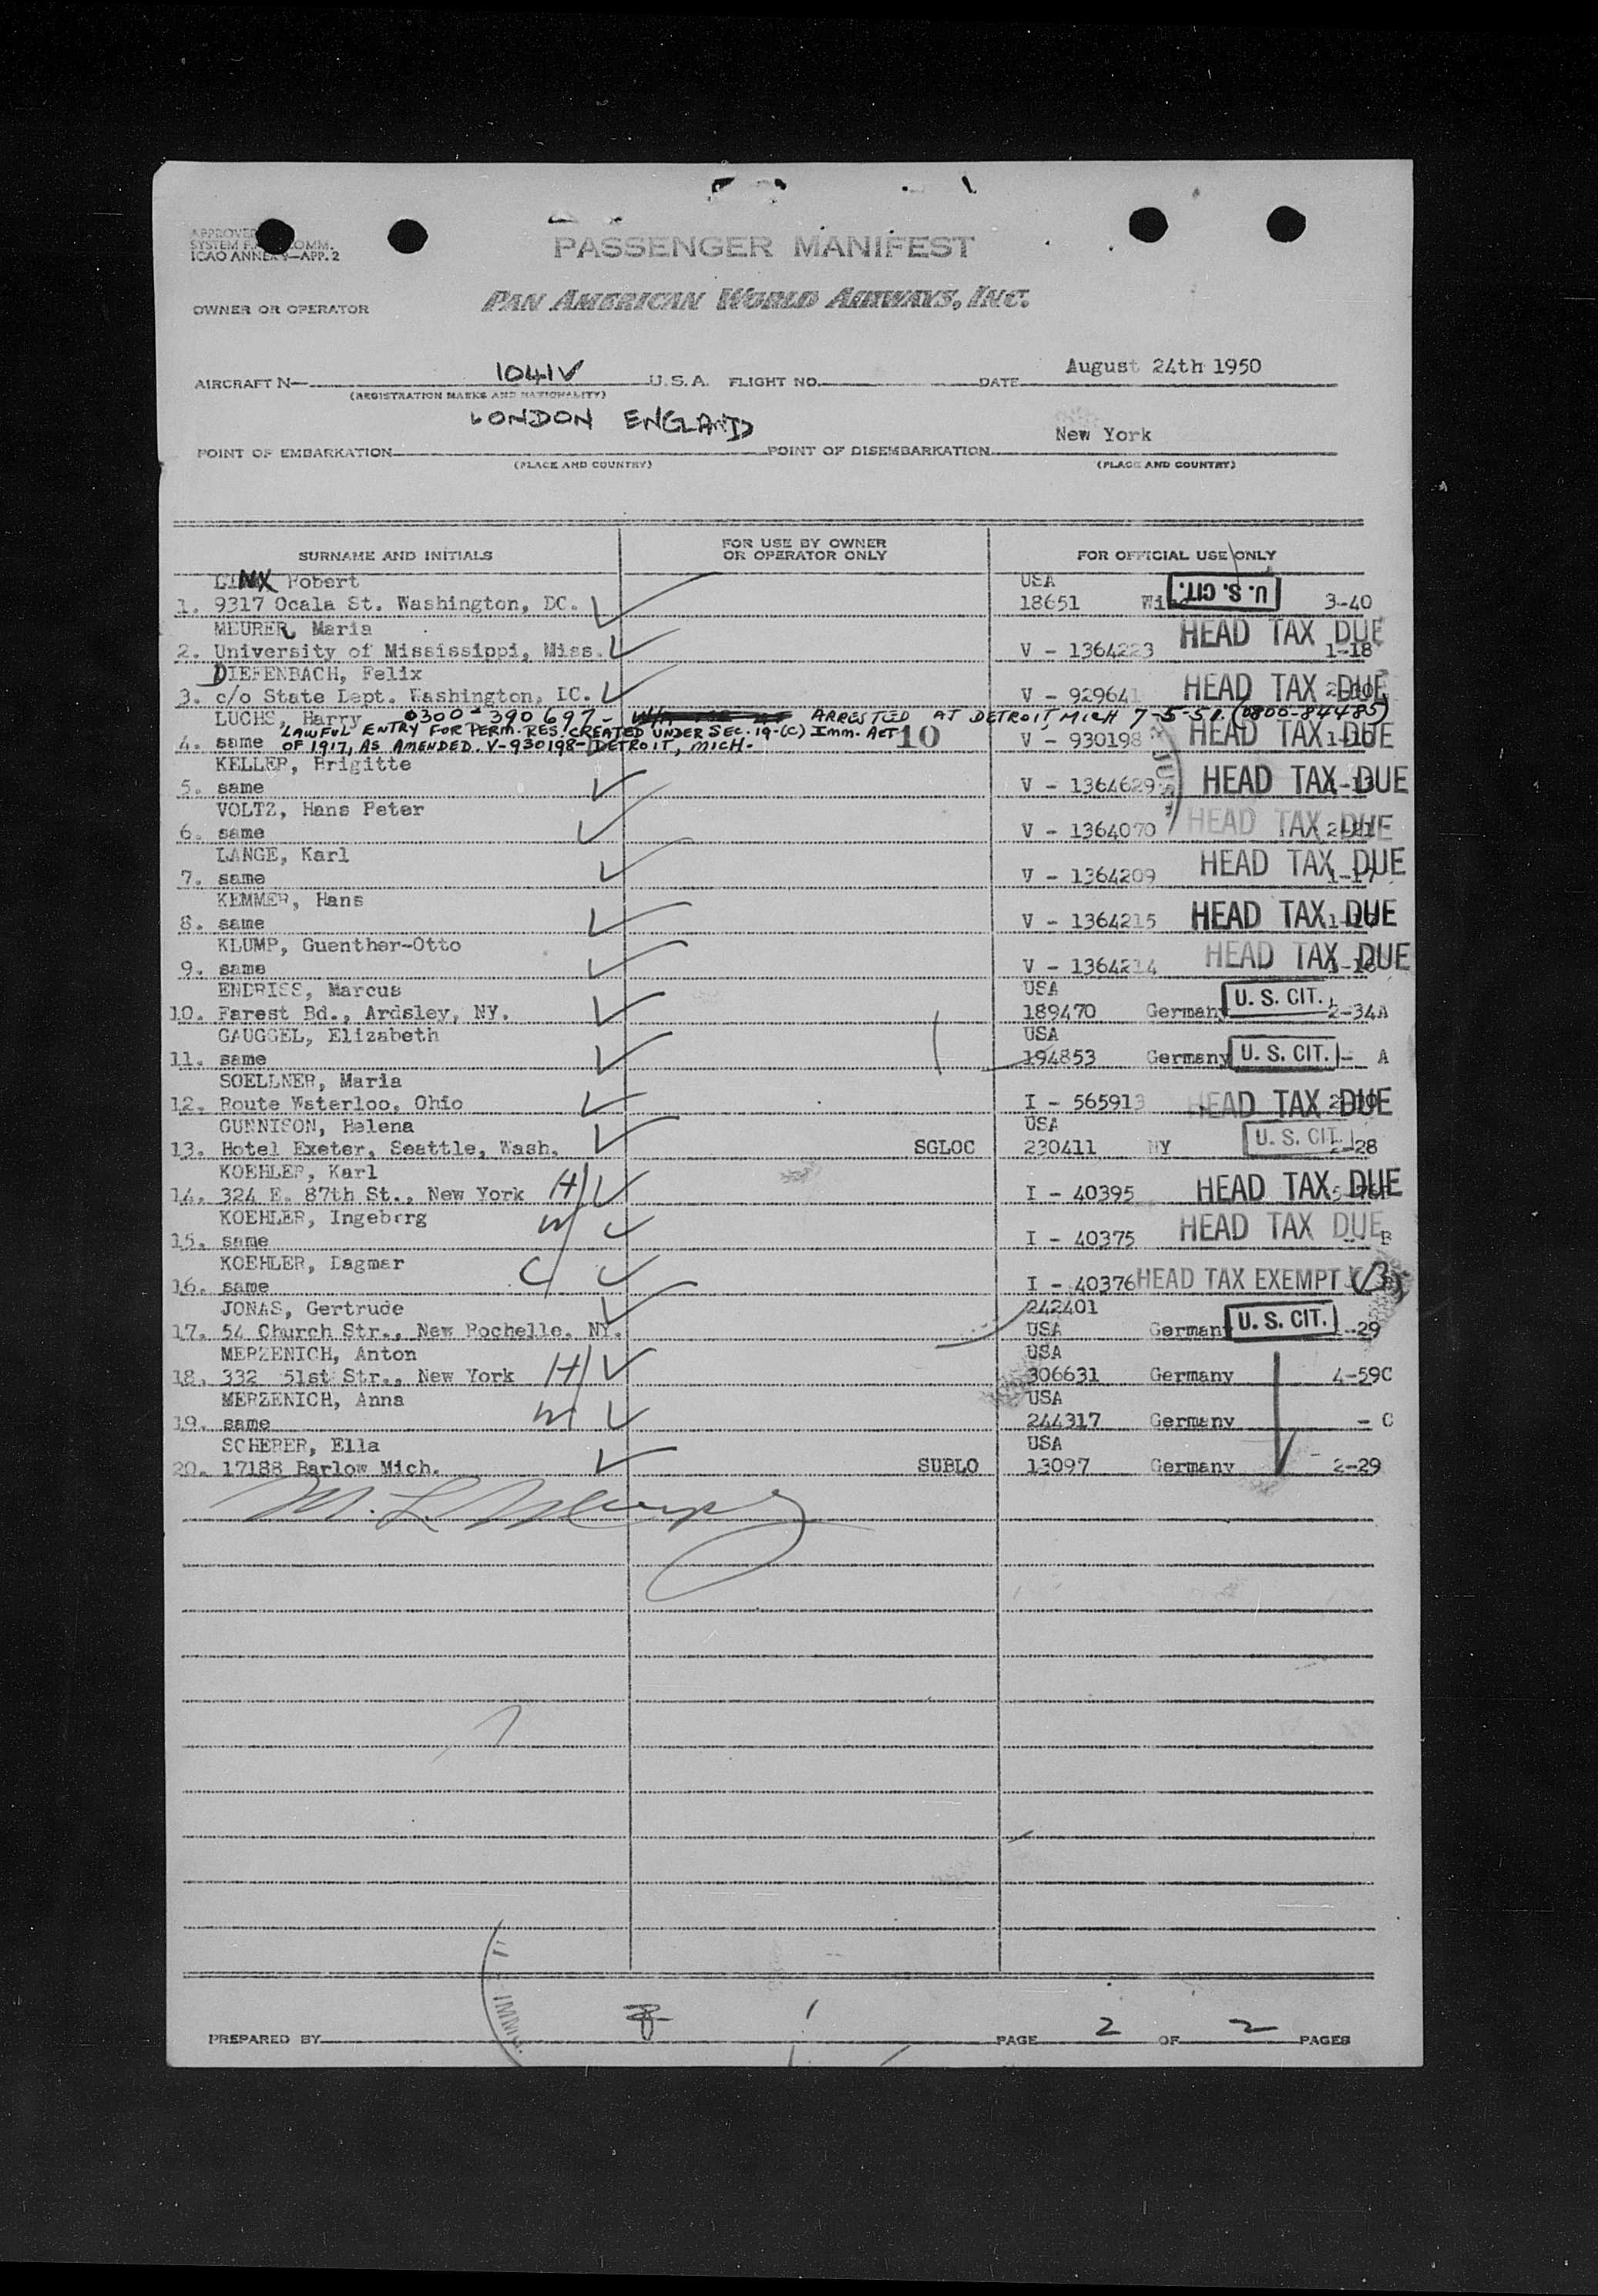 ICAO ANNEX 9—APP. 2
PASSENGER MANIFEST
OWNER OR OPERATOR
PAN AMERICAN WORLD AIRWAYS, INC.
AIRCRAFT N— 1041V U.S.A. FLIGHT NO. DATE August 24th 1950
(REGISTRATION MARKS AND NATIONALITY)
LONDON ENGLAND
New York
POINT OF EMBARKATION POINT OF DISEMBARKATION
(PLACE AND COUNTRY) (PLACE AND COUNTRY)
SURNAME AND INITIALS FOR USE BY OWNER OR OPERATOR ONLY FOR OFFICIAL USE ONLY
LINX Robert USA
1. 9317 Ocala St. Washington, DC. 18651 U. S. CIT. 3-40
MEURER, Maria
2. University of Mississippi, Miss. V - 1364223 HEAD TAX DUE 1-18
DIEFENBACH, Felix
3. c/o State Dept. Washington, DC. V - 929641 HEAD TAX DUE
LUCHS, Harry 0300-390697- ARRESTED AT DETROIT, MICH 7-5-51. (0800-84485)
LAWFUL ENTRY FOR PERM. RES. CREATED UNDER SEC. 19-(C) IMM. ACT
4. same OF 1917, AS AMENDED. V-930198-DETROIT, MICH- 10 V - 930198 HEAD TAX DUE
KELLER, Brigitte
5. same V - 1364629 HEAD TAX DUE
VOLTZ, Hans Peter
6. same V - 1364070 HEAD TAX DUE
LANGE, Karl
7. same V - 1364209 HEAD TAX DUE
KEMMER, Hans
8. same V - 1364215 HEAD TAX DUE
KLUMP, Guenther-Otto
9. same V - 1364214 HEAD TAX DUE
ENDRISS, Marcus USA
10. Farest Bd., Ardsley, NY. 189470 Germany U. S. CIT. 2-34A
GAUGGEL, Elizabeth USA
11. same 194853 Germany U. S. CIT. - A
SOELLNER, Maria
12. Route Waterloo, Ohio I - 565913 HEAD TAX DUE
GUNNISON, Helena USA
13. Hotel Exeter, Seattle, Wash. SGLOC 230411 NY U. S. CIT. 2-28
KOEHLER, Karl
14. 324 E. 87th St., New York H I - 40395 HEAD TAX DUE
KOEHLER, Ingeborg
15. same W I - 40375 HEAD TAX DUE B
KOEHLER, Dagmar
16. same C I - 40376 HEAD TAX EXEMPT
JONAS, Gertrude 242401
17. 54 Church Str., New Rochelle, NY. USA Germany U. S. CIT. -29
MERZENICH, Anton USA
18. 332 51st Str., New York H 306631 Germany 4-59C
MERZENICH, Anna USA
19. same W 244317 Germany - C
SCHERER, Ella USA
20. 17188 Barlow Mich. SUBLO 13097 Germany 2-29
PREPARED BY PAGE 2 OF 2 PAGES